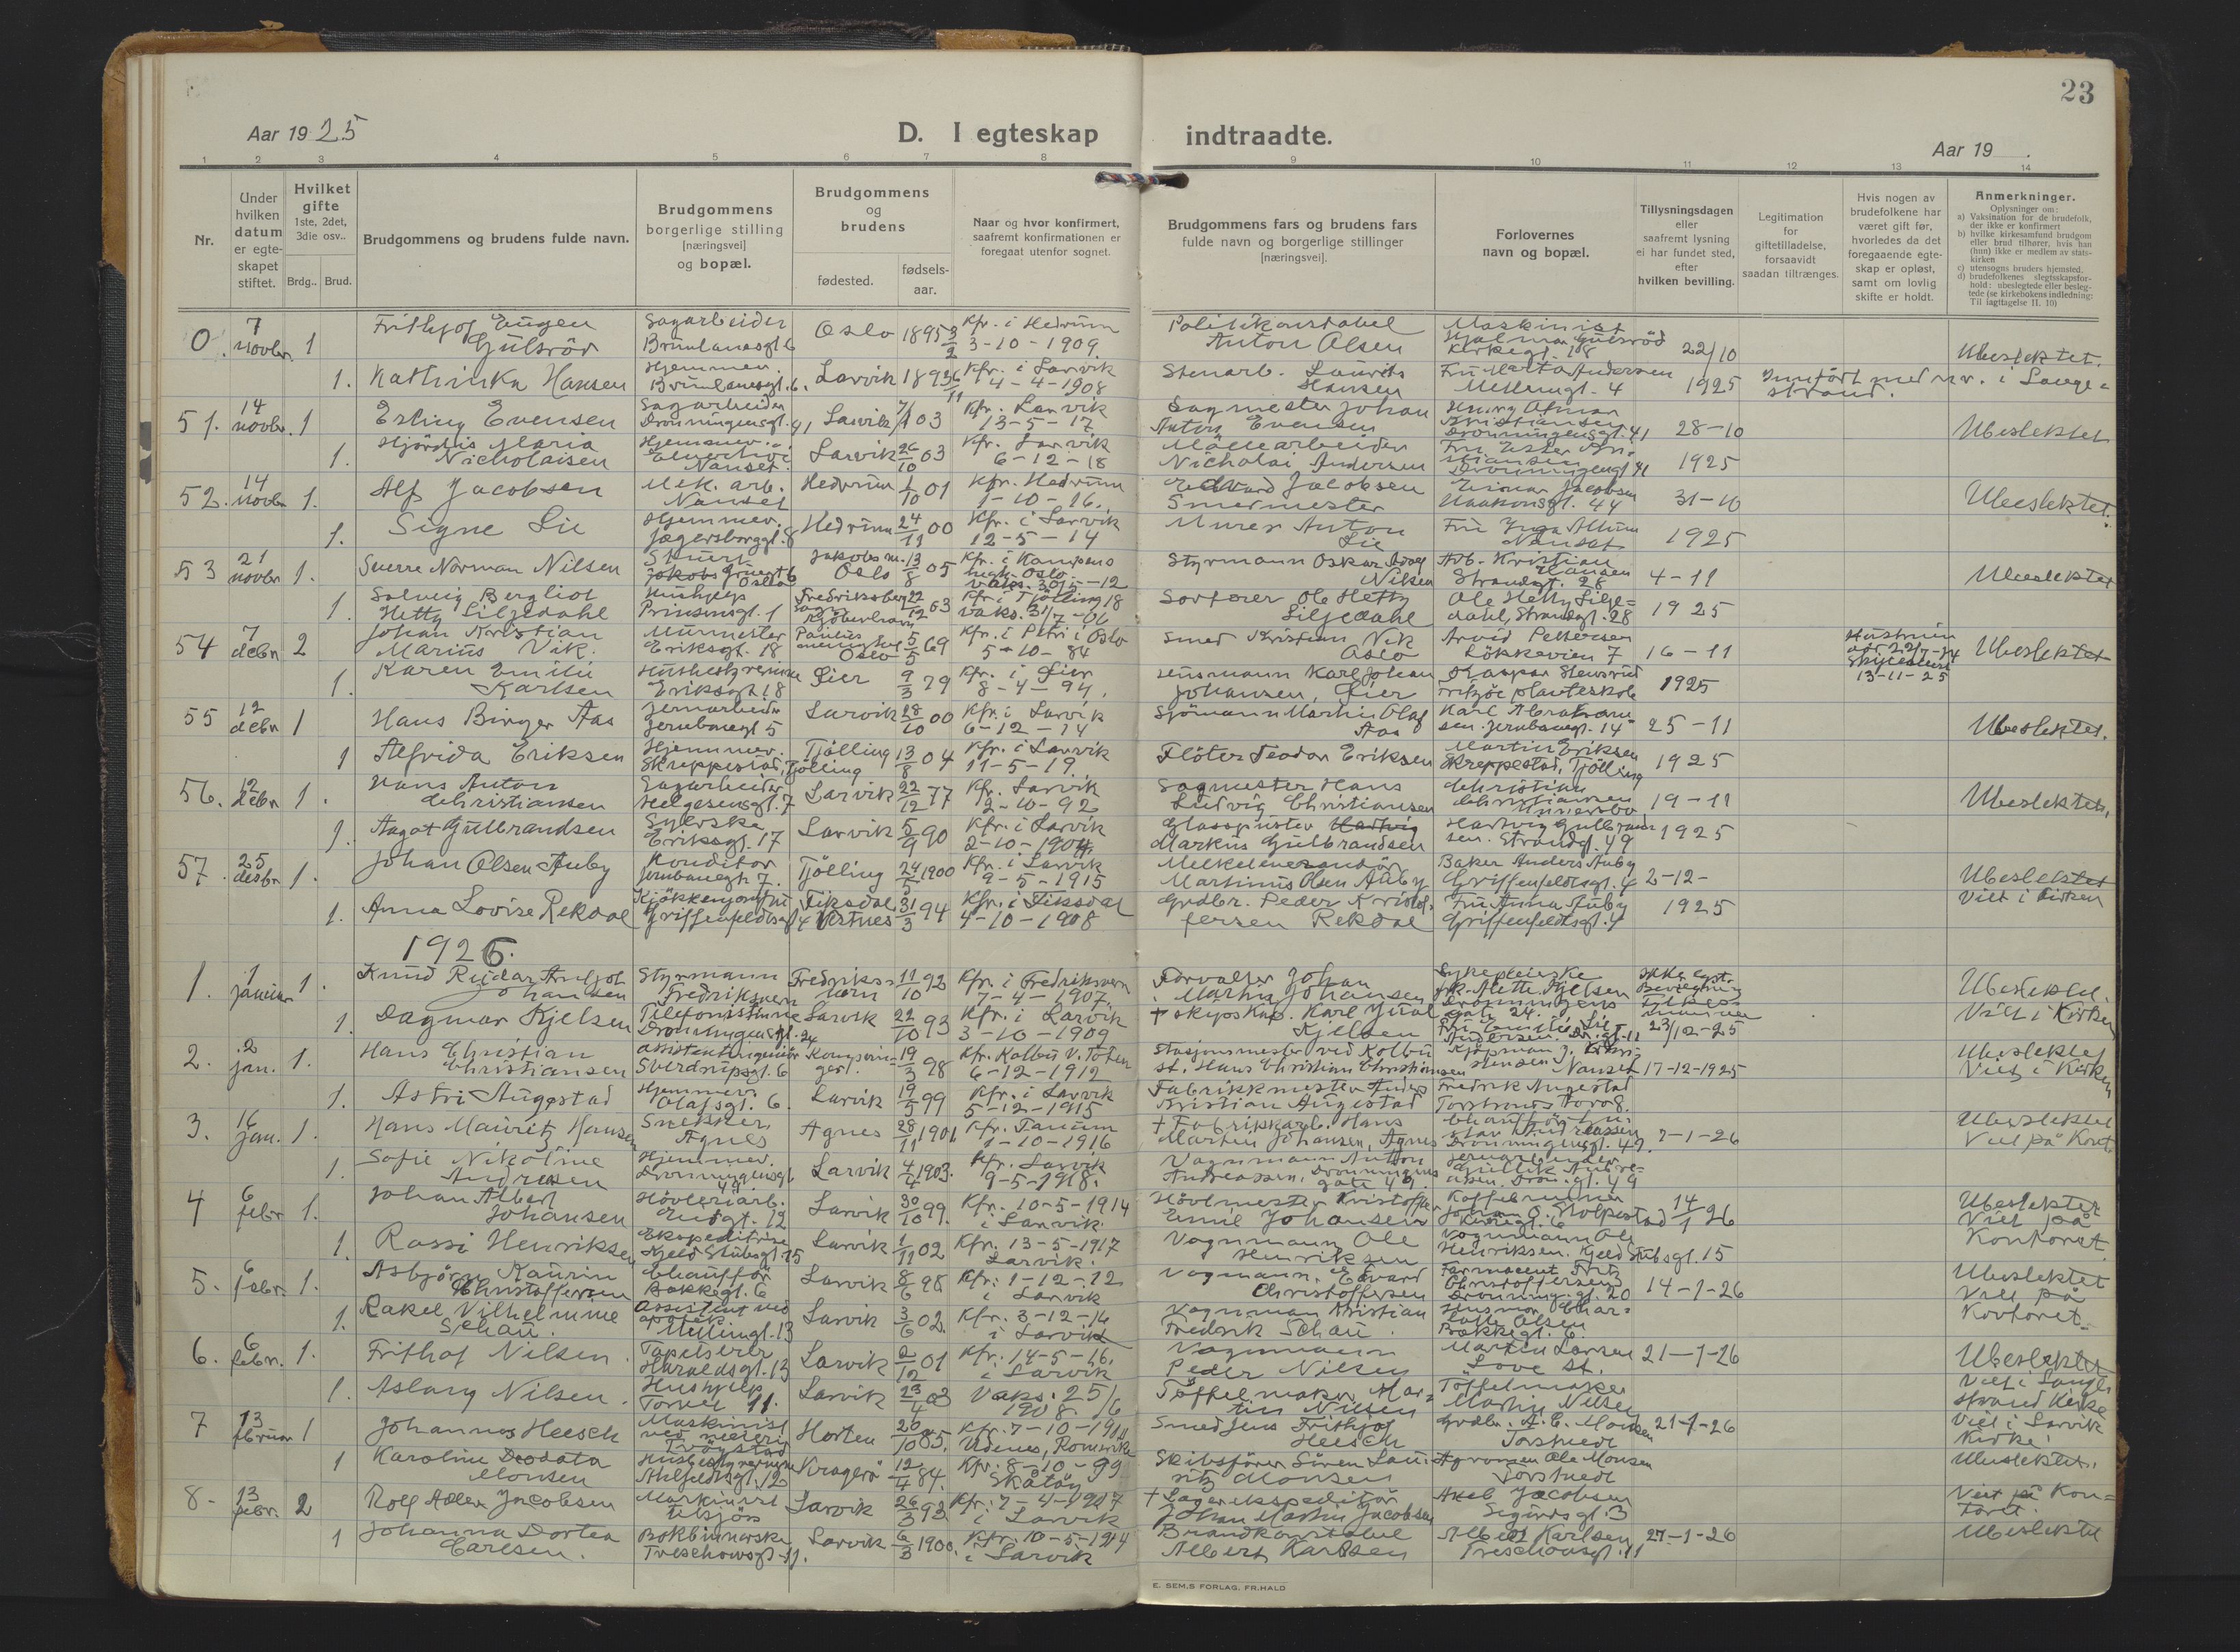 23
Aar 1925
D. I egteskap indtraadte.
Aar 19 .
1 2 3 4 5 6 7 8 9 10 11 12 13 14
Nr.
Under hvilken datum er egte-skapet stiftet.
Hvilket gifte
1ste, 2det, 3die osv..
Brdg.. Brud.
Brudgommens og brudens fulde navn.
Brudgommens borgerlige stilling [næringsvei] og bopæl.
Brudgommens og brudens
fødested.
fødsels-aar.
Naar og hvor konfirmert, saafremt konfirmationen er foregaat utenfor sognet.
Brudgommens fars og brudens fars fulde navn og borgerlige stillinger [næringsvei].
Forlovernes navn og bopæl.
Tillysningsdagen eller saafremt lysning ei har fundet sted, efter hvilken bevilling.
Legitimation for giftetilladelse, forsaavidt saadan tiltrænges.
Hvis nogen av brudefolkene har været gift før, hvorledes da det foregaaende egte-skap er opløst, samt om lovlig skifte er holdt.
Anmerkninger.
Oplysninger om:
a) Vaksination for de brudefolk, der ikke er konfirmert
b) hvilke kirkesamfund brudgom eller brud tilhører, hvis han (hun) ikke er medlem av stats-kirken
c) utensogns bruders hjemsted.
d) brudefolkenes slegtsskapsfor-hold: ubeslegtede eller besleg-tede (se kirkebokens indledning: Til iagttagelse II. 10)
0. 7 novbr. 1 Frithjof Eugen Gulsröd Sagarbeider Brunlanesgt. 6 Oslo 1895 3/2 Kfr. i Hedrum 3-10-1909. Politikonstabel Anton Olsen Maskinist Hjalmar Gulsröd Kirkegt. 18 22/10 Ubeslektet.
1. Kathinka Hansen Hjemmev. Brunlanesgt. 6. Larvik 1893 Kfr. i Larvik 4-4-1908 Stenarb. Laurits Hansen Fru Marta Andersen Mellemgt. 4 1925 Innfört med nr. i Lange=strand.
51. 14 novbr. 1 Erling Evensen Sagarbeider Dronningensgt. 41 Larvik 03 Kfr. Larvik 13-5-17 Sagmester Johan Anton Evensen Kristiansen Dronningensgt. 41 28-10 Ubeslektet
1. Hjördis Maria Nicholaisen Hjemmev. Nanset. Larvik 26/10 03 Kfr. Larvik 6-12-18 Möllearbeider Nicholai Andersen Fru Ester Kristiansen Dronningensgt 41 1925
52. 14 novbr 1. Alf Jacobsen Mek. arb. Nanset Hedrum 1/10 01 Kfr. Hedrum 1-10-16. Edvard Jacobsen Smörmester Einar Jacobsen Haakonsgt. 44 31-10 Ubeslektet.
1. Signe Lie Hjemmev. Jægersborggt. 8 Hedrum 24/11 00 Kfr. i Larvik 12-5-14 Murer Anton Lie Fru Inga Allum Nanset 1925
53 21 novbr 1. Sverre Norman Nilsen Oslo Oslo 13/8 05 Kfr. i Kampens Styrmann Oskar Adolf Nilsen Arb. Kristian Hansen Strandgt. 28 4-11 Ubeslektet
1. Solveig Bergliot Hetty Liljedahl Hushjelp Prinsensgt. 1 Fredriksberg Kjöbenhavn 22/12 03 Kfr. i Tjölling 18 vaks. 31/7-06 Sorterer Ole Hetty Liljedahl Ole Hetty Lilje=dahl, Strandgt. 28 1925
54 7 debr 2 Johan Kristian Marius Vik. Murmester Eriksgt. 18 Oslo 5/5 69 Kfr. i Petri i Oslo 5-10-84 Smed Kristian Vik Oslo Arvid Pettersen Lökkeveien 7 16-11 Ubeslektet
1. Karen Emilie Karlsen Husbestyrerinne Eriksgt. 18 Lier 9/3 79 Kfr. i Lier 8-4-94. Karl Johan Johansen, Lier Kaspar Stensrud planteskole 1925 13-11-25
55 12 debr 1 Hans Birger Aas Jernarbeider Jernbanegt 5 Larvik 28/10 00 Kfr. i Larvik 6-12-14 Sjömann Martin Olaf Aas Karl Abraham=sen. Jernbanegt. 14 25-11 Ubeslektet.
1 Alfrida Eriksen Hjemmev. Skreppestad, Tjölling Tjölling 13/8 04 Kfr. i Larvik 11-5-19. Flöter Teodor Eriksen Martin Eriksen Skreppestad, Tjölling 1925
56. 12 debr 1. Hans Anton Christiansen Sagarbeider Helgesensgt. 7 Larvik 22/12 77 Kfr. Larvik 2-10-92 Sagmester Hans Ludvig Christiansen Christian Christiansen 19-11 Ubeslektet.
1. Aagot Gulbrandsen Syerske Eriksgt. 17 Larvik 5/9 90 Kfr. i Larvik 2-10-1904. Glasspuster Markus Gulbrandsen Hartvig Gulbrand=sen. Strandgt. 49 1925
57. 25 desbr. 1. Johan Olsen Auby Konditor Jernbanegt 7. Tjölling 24/5 1900 Kfr. i Larvik 9-5-1915 Melkeleverandör Martinus Olsen Auby Baker Anders Auby Griffenfeldtsgt. 4 2-12- Ubeslektet
1. Anna Lovise Rekdal Griffenfeldtsgt 4 Fiksdal Vestnes 31/3 94 Kfr. i Fiksdal 4-10-1908 Grdbr. Peder Kristof=fersen Rekdal Fru Anna Auby Griffenfeldtsgt. 4 1925 Viet i kirken
1926.
1. 1 januar 1. Knud Reidar Johansen Styrmann Fredriksvern Fredriks=vern 11/10 92 Kfr. i Fredriksvern 7-4-1907. Forvalter Johan Martin Johansen Sykepleierske Frk. Mette Kjelsen Dronningens gate 24. Ubeslektet.
1. Dagmar Kjelsen Telefonistinne Dronningensgt. 24 Larvik 22/10 93 Kfr. i Larvik 3-10-1909 + skipskap. Karl Juul Kjelsen Fru Emilie Lie Andersen. 23/12-25 Viet i Kirken
2. 2 jan. 1. Hans Christian Christiansen assistentingeniör Sverdrupsgt. 6 19/3 98 Kfr. Kolbu V. Toten 6-12-1912 Stasjonsmester ved Kolbu st. Hans Christian Christiansen Kjöpman Nanset 17-12-1925 Ubeslektet Viet i Kirken
1. Astri Augestad Hjemmev. Olafsgt. 6. Larvik 19/5 99 Kfr. i Larvik 5-12-1915 Fabrikkmester Anders Kristian Augestad Fredrik Augestad Torstrands torv 8.
3. 16 jan. 1. Hans Mauritz Hansen Snekker, Agnes Agnes 28/11 1901 Kfr. Tanum 1-10-1916 + Fabrikkarb. Hans Martin Johansen, Agnes Dronningensgt. 49. 7-1-26 Ubeslektet Viet på Kont
1. Sofie Nikoline Andresen Hjemmev. Dronningensgt. 49 Larvik 4/4 1903. Kfr. Larvik 9-5-1918. Vognmann Anton Andreassen, Dronningens gate 49. Gullik Andre=assen. Dron. gt. 49
4 6 febr 1. Johan Albert Johansen Hövleriarb. Larvik 30/10 99. Kfr. 10-5-1914 i Larvik. Hövlmester Kristoffer Emil Johansen Johan O. Stolpestad 14/1 26 Ubeslektet Viet på Kontoret.
1. Rassi Henriksen Ekspeditrise Kjeld Stubsgt. 15 Larvik 1/11 02 Kfr. 13-5-1917 Larvik. Vognmann Ole Henriksen Vognmann Ole Henriksen. Kjeld Stubsgt. 15
5. 6 febr. 1. Asbjörn Kaurin Christoffersen Chaufför Bakkegt. 6 Larvik 8/6 98 Kfr. 1-12-12 i Larvik Vogmann, Edvard Christoffersen Farmaceut Fritz Christoffersen Dronning. gt. 20 14-1-26 Ubeslektet Viet på Kontoret.
1. Rakel Vilhelmine Schau. Assistent ved apotek. Mellingt. 13 Larvik 3/6 02. Kfr. 3-12-16 i Larvik Vognmann Kristian Fredrik Schau. Husmor Char=lotte Olsen Bakkegt. 6.
6. 6 febr. 1. Frithof Nilsen. Tapetserer Haraldsgt. 13 Larvik 2/12 01 Kfr. 14-5-16. i Larvik Vognmann Peder Nilsen Martin Larsen Love st. 21-1-26 Ubeslektet
1. Aslaug Nilsen. Hushjelp Torvet 11. Larvik 23/4 03 Vaks. 25/6 1908. Töffelmaker Mar=tin Nilsen Töffelmaker Martin Nilsen Viet i Lange strand Kirke
7 13 februar 1 Johannes Heesch Maskinist ved meieri Trögstad Horten 20/10 85. Kfr. 7-10-1900 Udenes, Romerike Smed Jens Frithjof Heesch Grdbr. A. C. Monsen Torstvedt 21-1-26 Viet i Larvik Kirke.
1 Karoline Deodata Monsen Husbestyrerinne Ahlefeldtsgt. 12 Kragerö 12/4 84. Kfr. 8-10-99 Skåtöy Skibsförer Sören Lau=ritz Monsen Agronom Ole Monsen Torstvedt Ubeslektet.
8- 13 febr. 2 Rolf Adler Jacobsen Maskinist tilsjös Larvik 26/3 93. Kfr. 7-4-1907 i Larvik + Lagerekspeditör Johan Martin Jacobsen Axel Jacobsen Sigurdsgt. 3 Viet på Kon=toret.
1 Johanna Dortea Carlsen. Bokbinnerske Treschowsgt. 11. Larvik 6/3 1900. Kfr. 10-5-1914 i Larvik Brandkonstabel Albert Karlsen Albert Karlsen Treschowsgt. 11 27-1-26 Ubeslektet
E. SEM,S FORLAG, FR.HALD